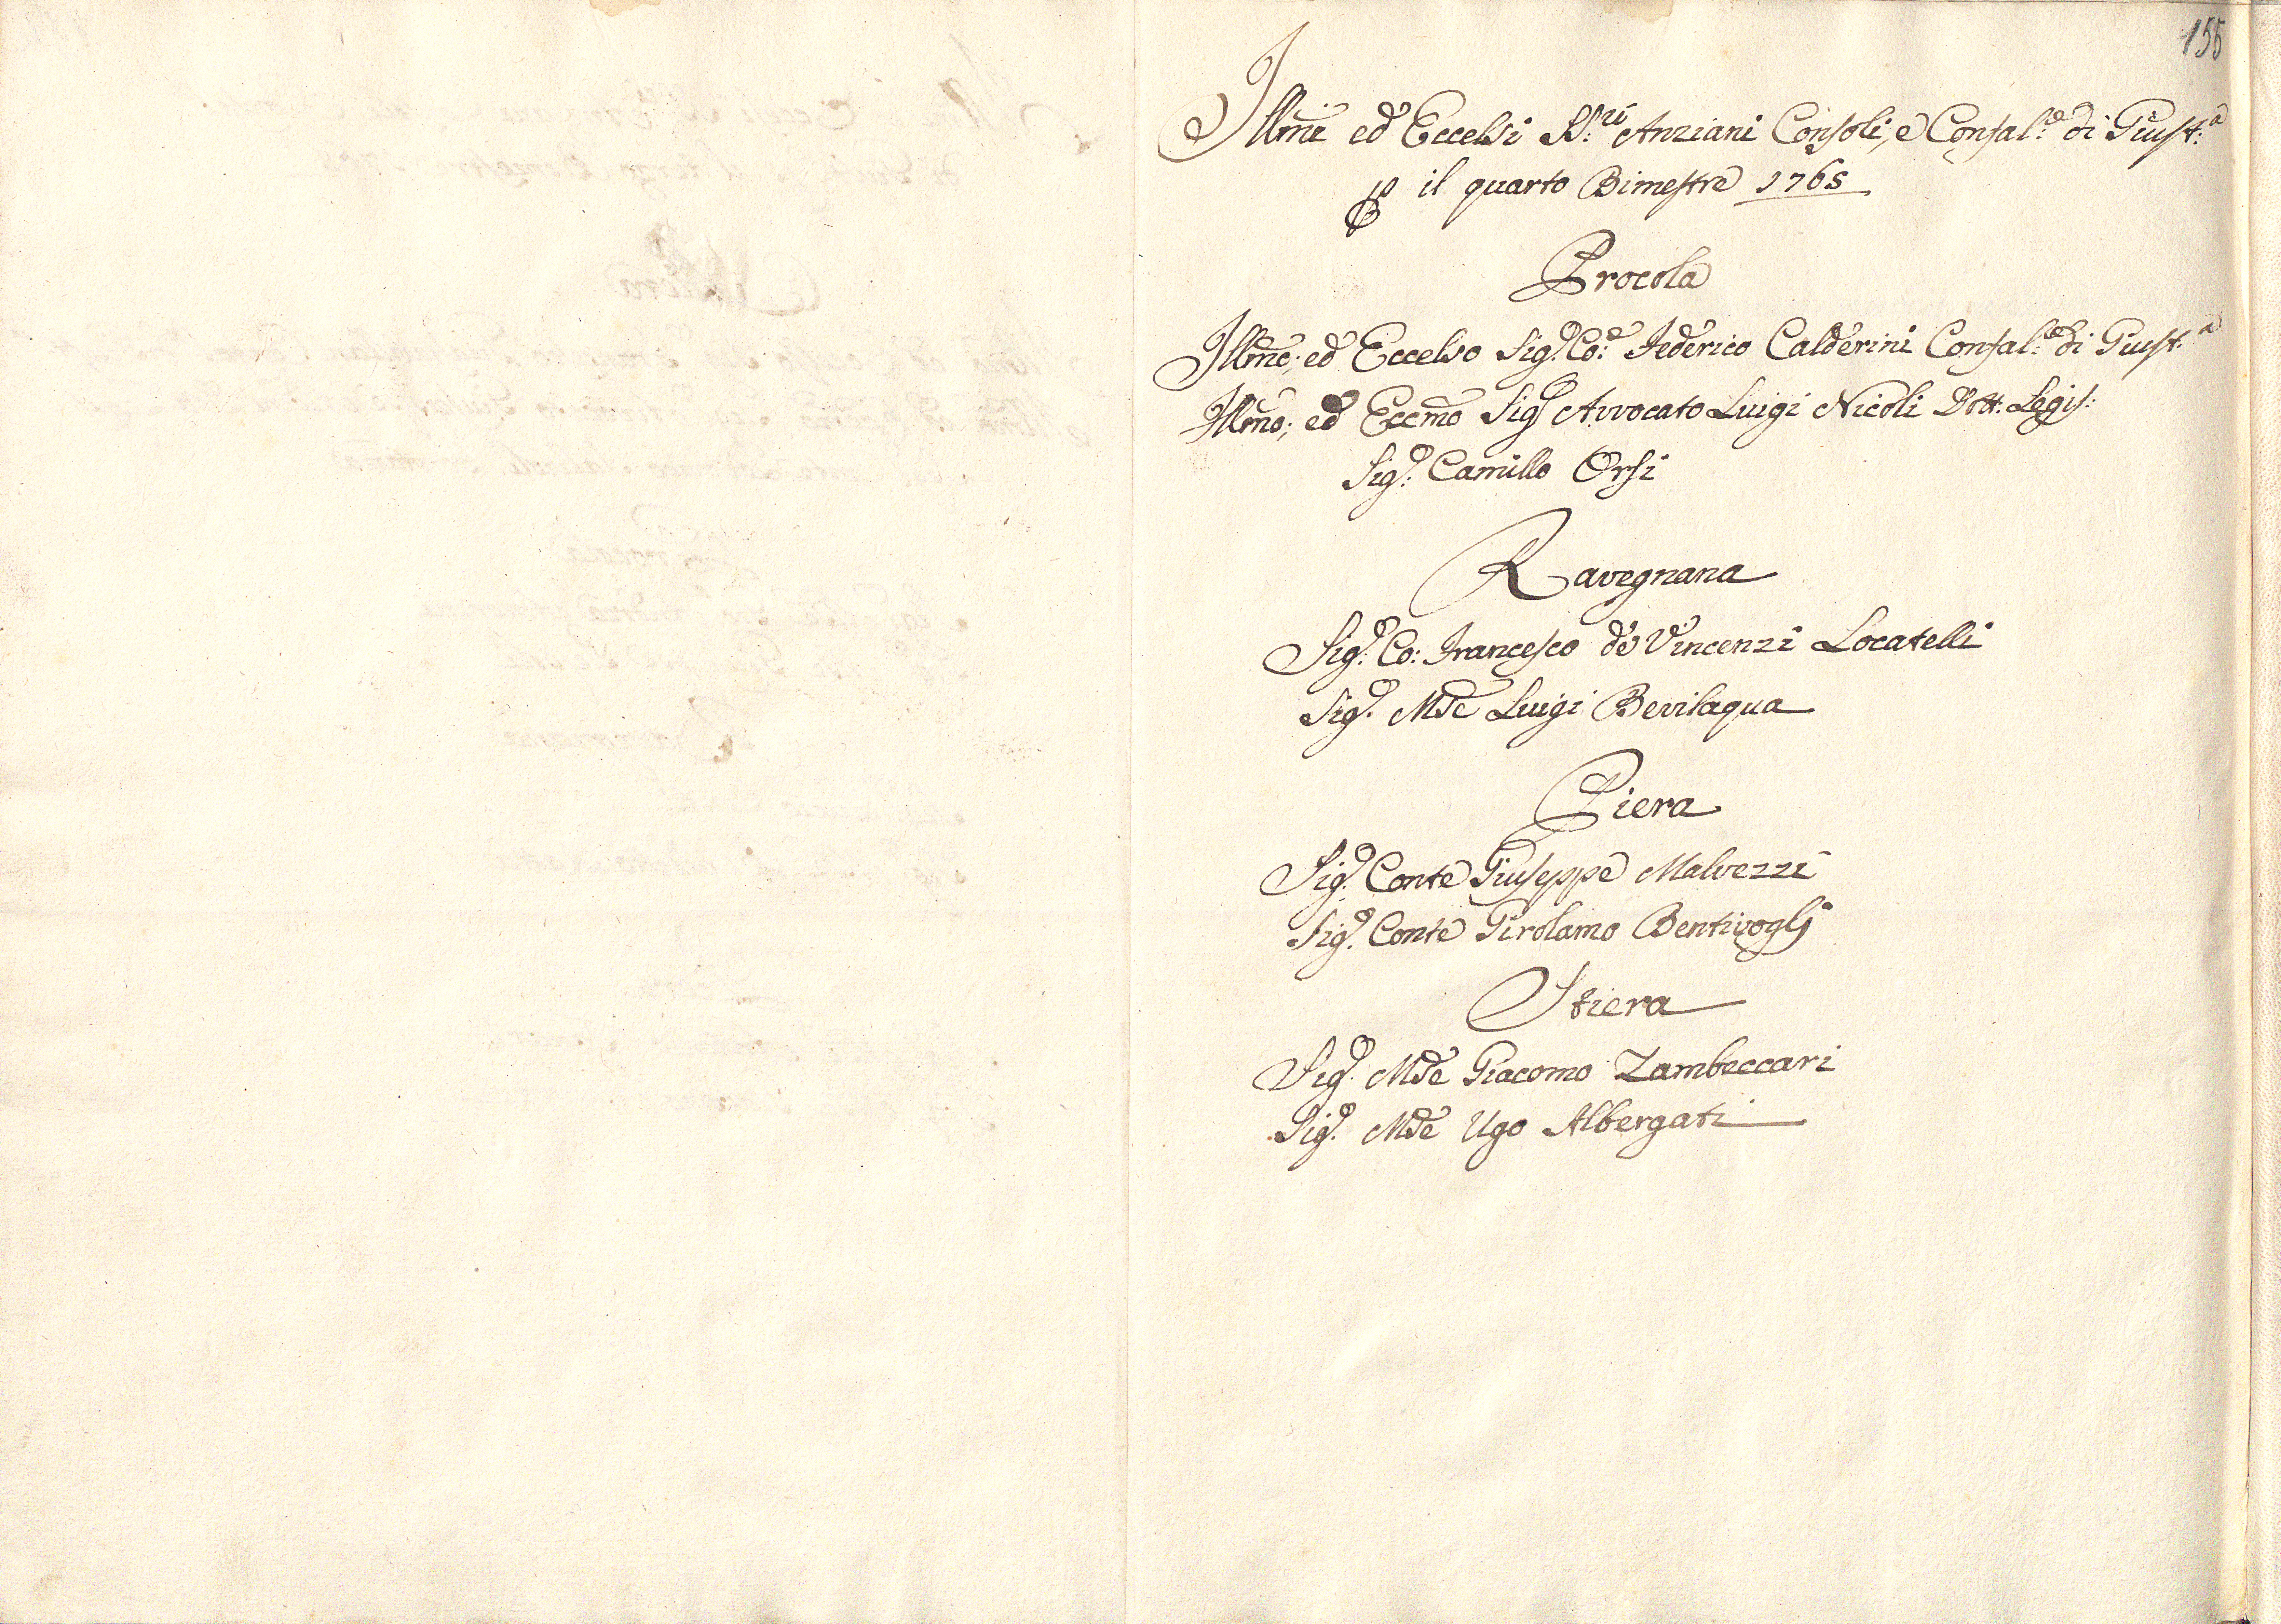 155
Illmi ed Eccelsi SS.ri Anziani Consoli, e Confal.e di Giust.a
P il quarto Bimestre 1765
Procola
Illmo; ed Eccelso Sig.r Co:e Federico Calderini Confal.e di Giust.a
Illmo; ed Eccmo Sigr Avvocato Luigi Nicoli Dott: Legis:
Sig.r Camillo Orsi
Ravegnana
Sig.r Co: Francesco de Vincenzi Locatelli
Sig.r Mse Luigi Bevilaqua
Piera
Sig.r Conte Giuseppe Malvezzi
Sig.r Conte Girolamo Bentivoglj
Stiera
Sig.r Mse Giacomo Zambeccari
Sig.r Mse Ugo Albergati